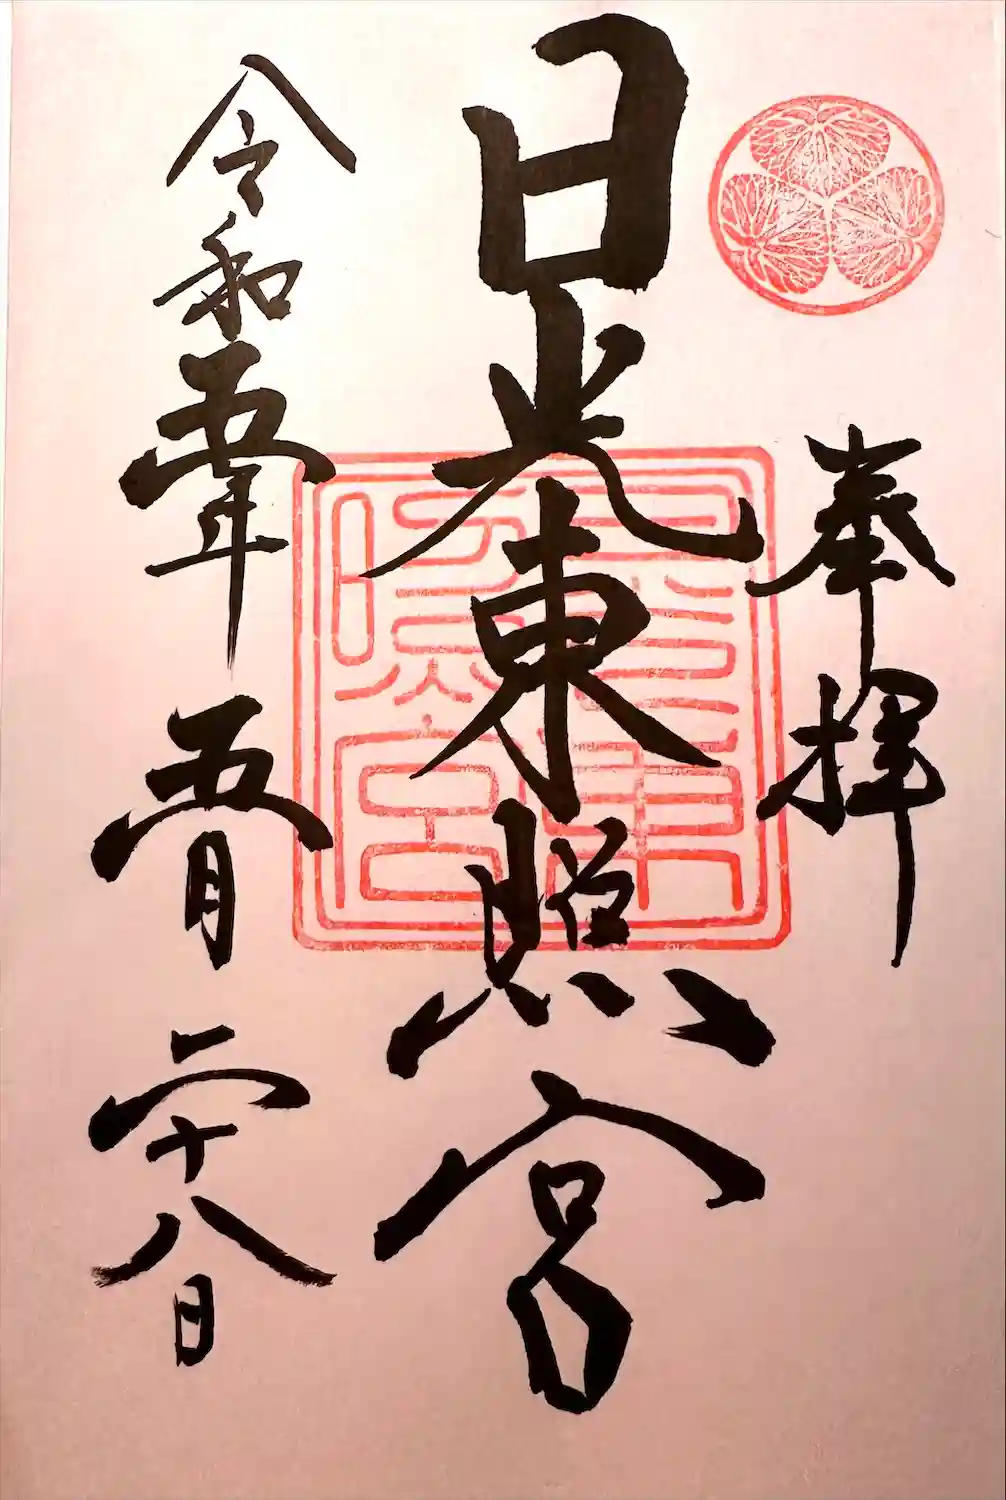 奉拝
日光東照宮
令和五年 五月 二十八日
日光東照宮